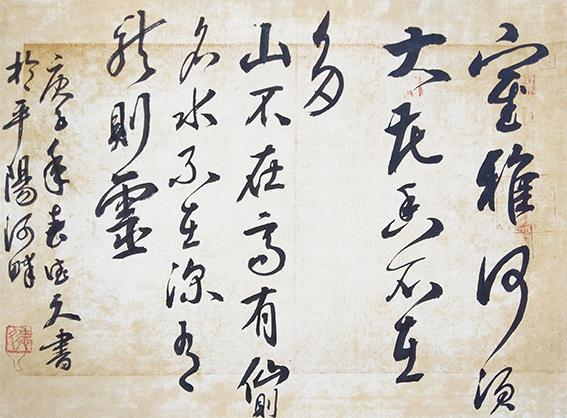 室雅何須
大花香不在
多
山不在高有仙則
名水不在深有
龍則靈
庚子年春 書
於平陽河畔